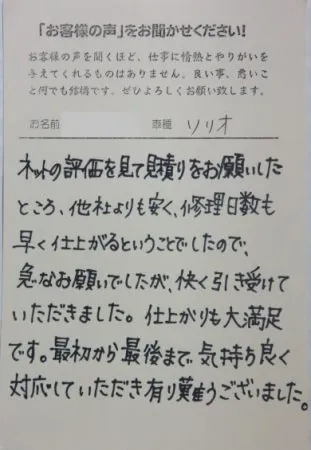 「お客様の声」をお聞かせください!
お客様の声を聞くほど、仕事に情熱とやりがいを
与えてくれるものはありません。良い事、悪いこ
と何でも結構です。ぜひよろしくお願い致します。
お名前 車種 ソリオ
ネットの評価を見て見積りをお願いした
ところ、他社よりも安く、修理日数も
早く仕上がるということでしたので、
急なお願いでしたが、快く引き受けて
いただきました。仕上がりも大満足
です。最初から最後まで気持ち良く
対応していただき有り難うございました。